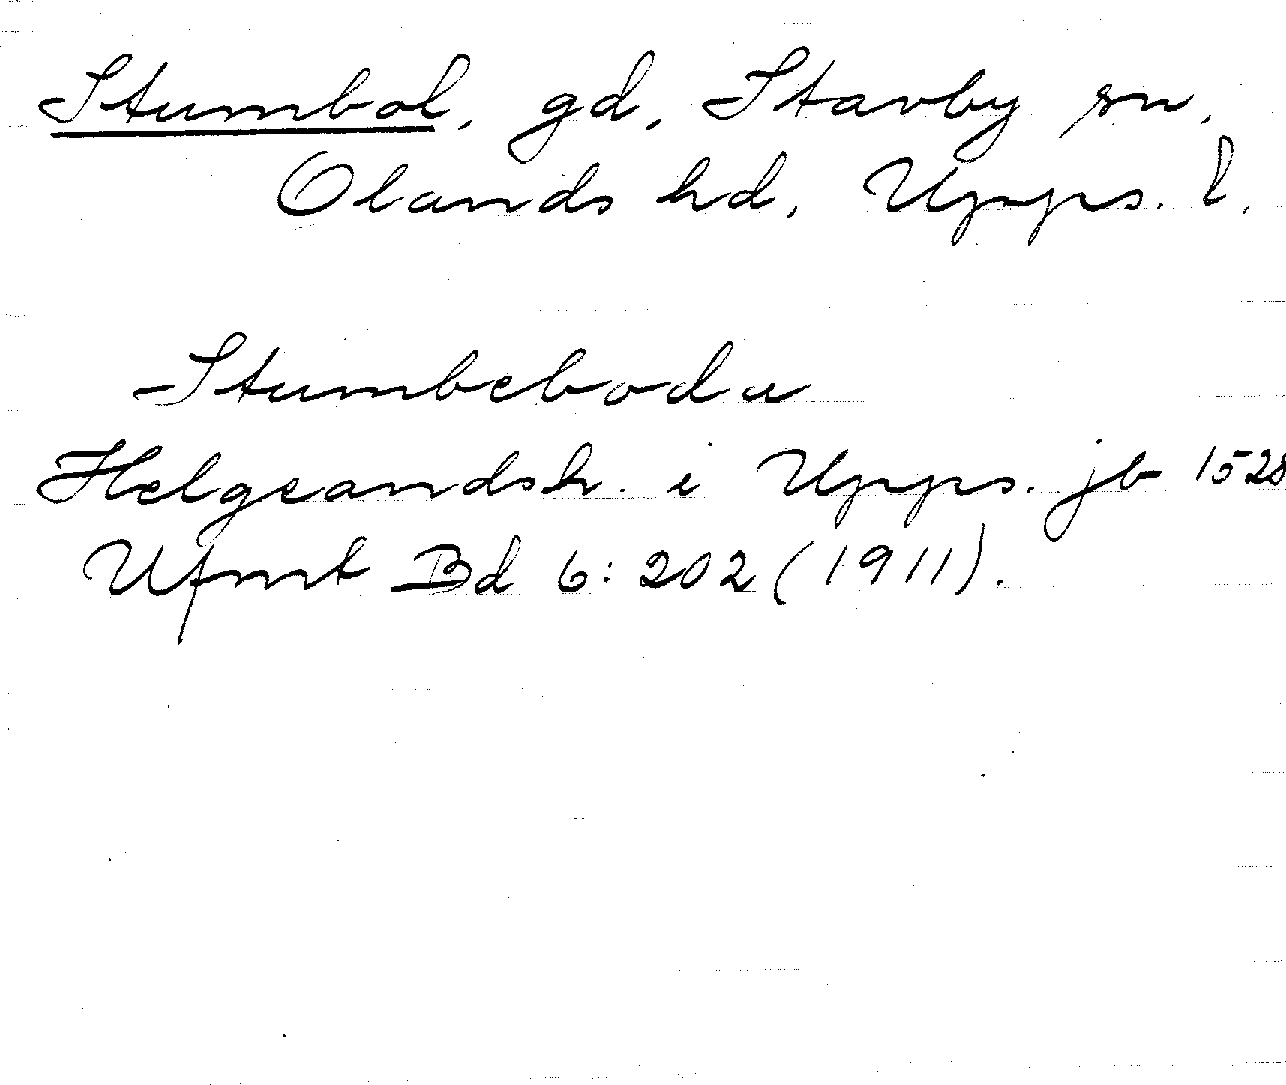 Stumbol, gd, Stavby sn,
Olands hd, Upps. l.
Stumbeboda
Helgeandsh. i Upps. jb 1528
Ufmt Bd 6: 202 (1911).